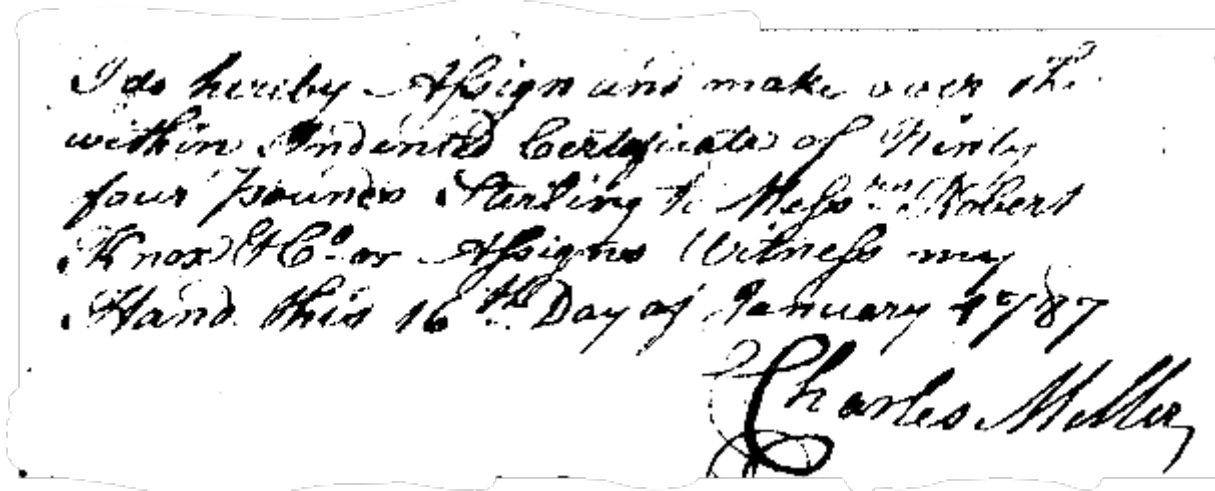 I do hereby Assign and make over the
within Indented Certificate of Ninty
four Pounds Sterling to Messrs Robert
Knox & Co or Assigns Witness my
Hand this 16th Day of January 1787
Charles Miller